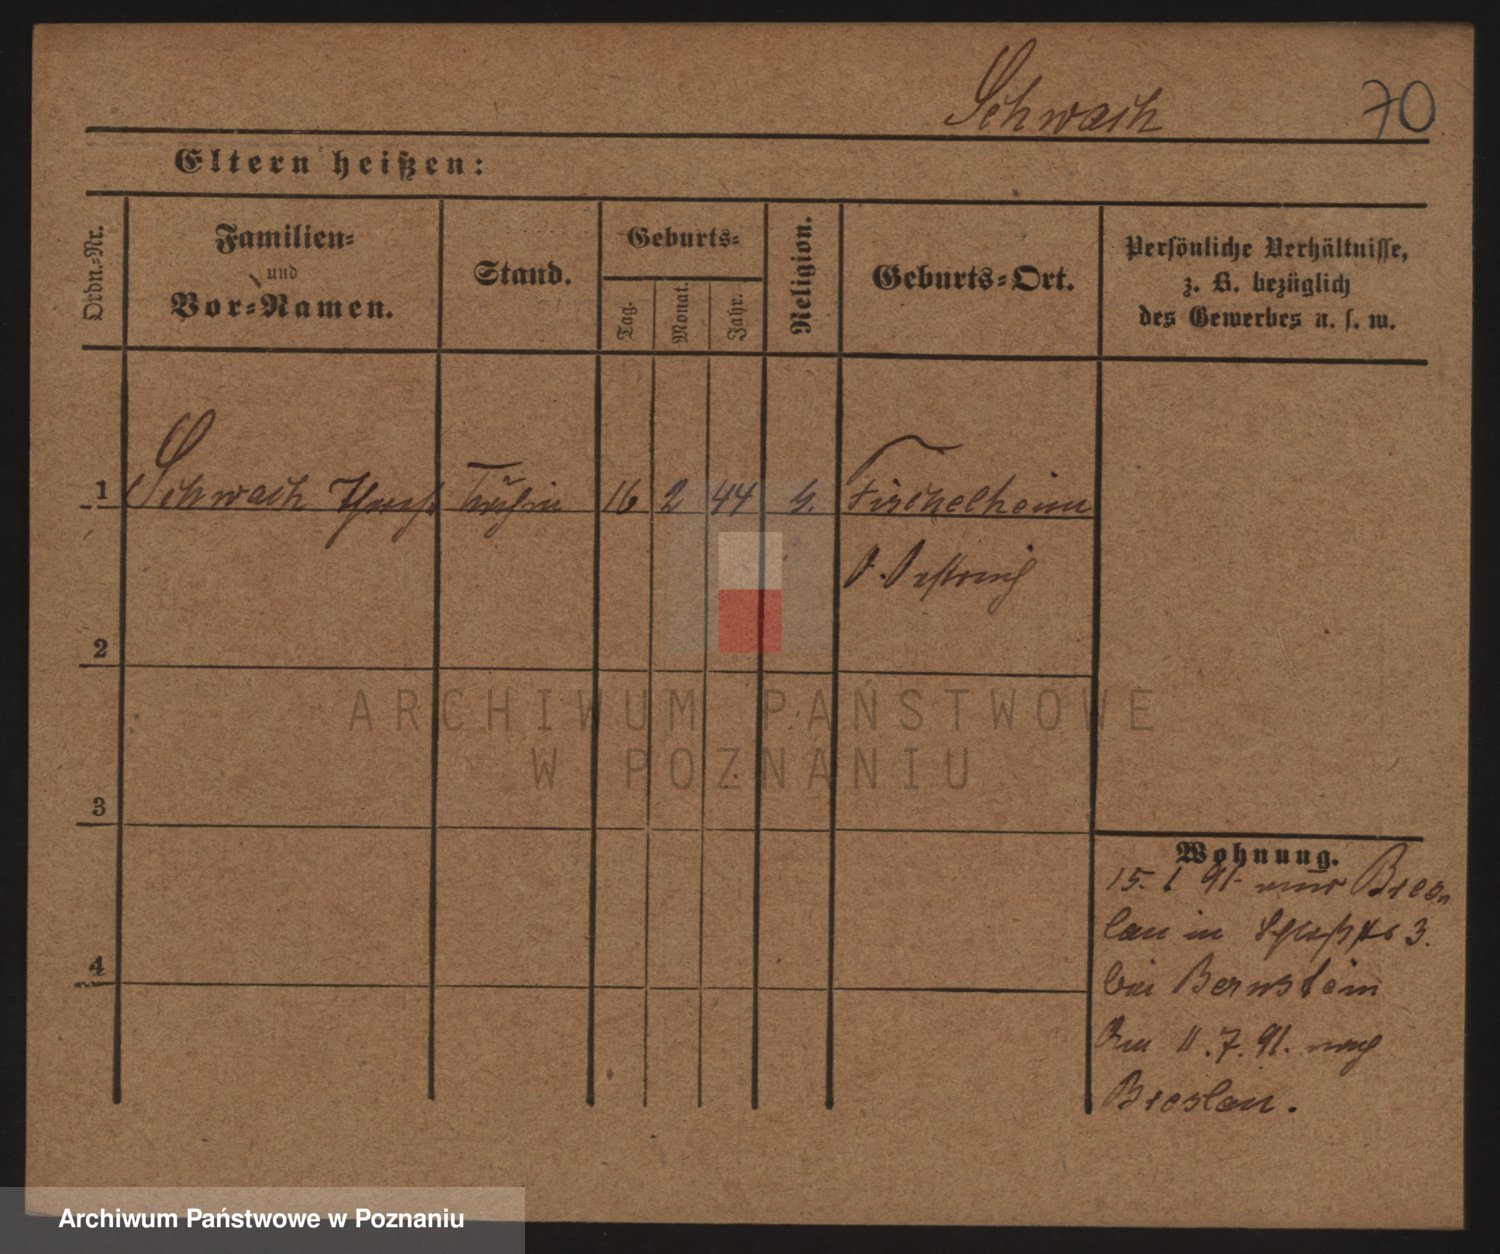 Schwach 70
Eltern heißen:
Ordn.-Nr.
Familien- und Vor-Namen.
Stand.
Geburts-
Tag.
Monat.
Jahr.
Religion.
Geburts-Ort.
Persönliche Verhältnisse,
z. B. bezüglich
des Gewerbes u. s. w.
1 Schwach 16 2 44 Fischelheim
O. Östreich
2
3
4
Wohnung.
15. 1 91. aus Bres-
lau in 3.
bei Bernstein
Am 11.7.91. nach
Breslau.
ARCHIWUM PAŃSTWOWE
W POZNANIU
Archiwum Państwowe w Poznaniu